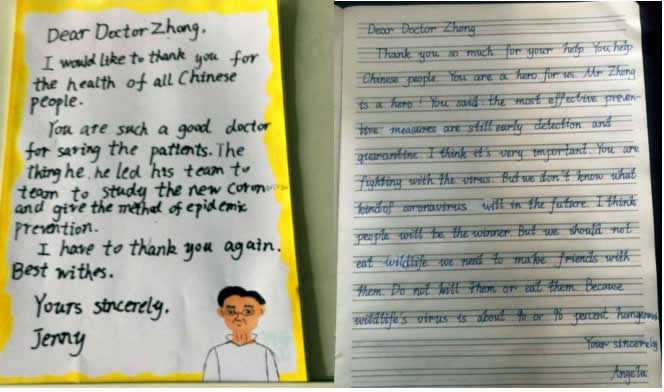 Dear Doctor Zhong,
I would like to thank you for
the health of all Chinese
people.
You are such a good doctor
for saring the patients. The
thing he. he led his team to
team to study the new coron
and give the method of epidemic
prevention.
I have to thank you again.
Best withes.
Yours sincerely.
Jenny
Dear Doctor Zhong
Thank you so much for your help You help
Chinese people. You are a hero for us. Mr Zhong
is a hero! You said: the most effective preven-
tive measures are still early detection and
quarantine. I think it's very important. You are
fighting with the virus. But we don't know what
kind of coronavirus will in the future. I think
people will be the winner. But we should not
eat wildlife we need to make friends with
them. Do not kill them or eat them. Because
wildlife's virus is about 90 or 96 percent
Your sincerely